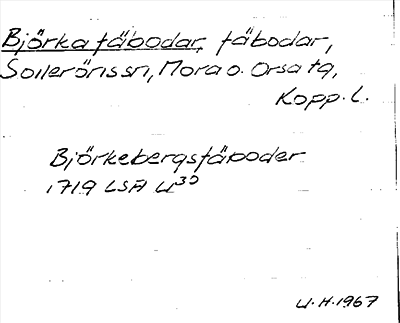 Björka fäbodar, fäbodar,
Solleröns sn, Mora o. Orsa tg,
Kopp. l.
Björkebergsfäboder
1719 LSA U30
U.H. 1967